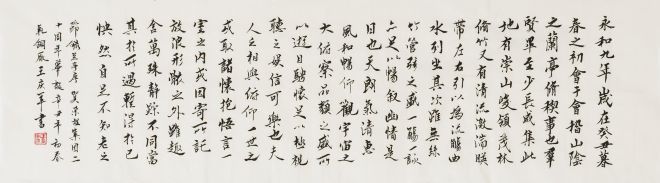 永和九年歲在癸丑暮
春之初會于會稽山陰
之蘭亭脩稧事也羣
賢畢至少長咸集此
地有崇山峻領茂林
脩竹又有清流激湍暎
帶左右引以為流觴曲
水列坐其次雖無絲
竹管弦之盛一觴一詠
亦足以暢敘幽情是
日也天朗氣清惠
風和暢仰觀宇宙之
大俯察品類之盛所
以遊目騁懷足以極視
聽之娛信可樂也夫
人之相與俯仰一世
或取諸懷抱悟言一
室之內或因寄所託
放浪形骸之外雖趣
舍萬殊靜躁不同當
其於所遇暫得於己
怏然自足不知老之
節臨蘭亭序集团二
十周年華誕辛丑年初春
王慶軍書